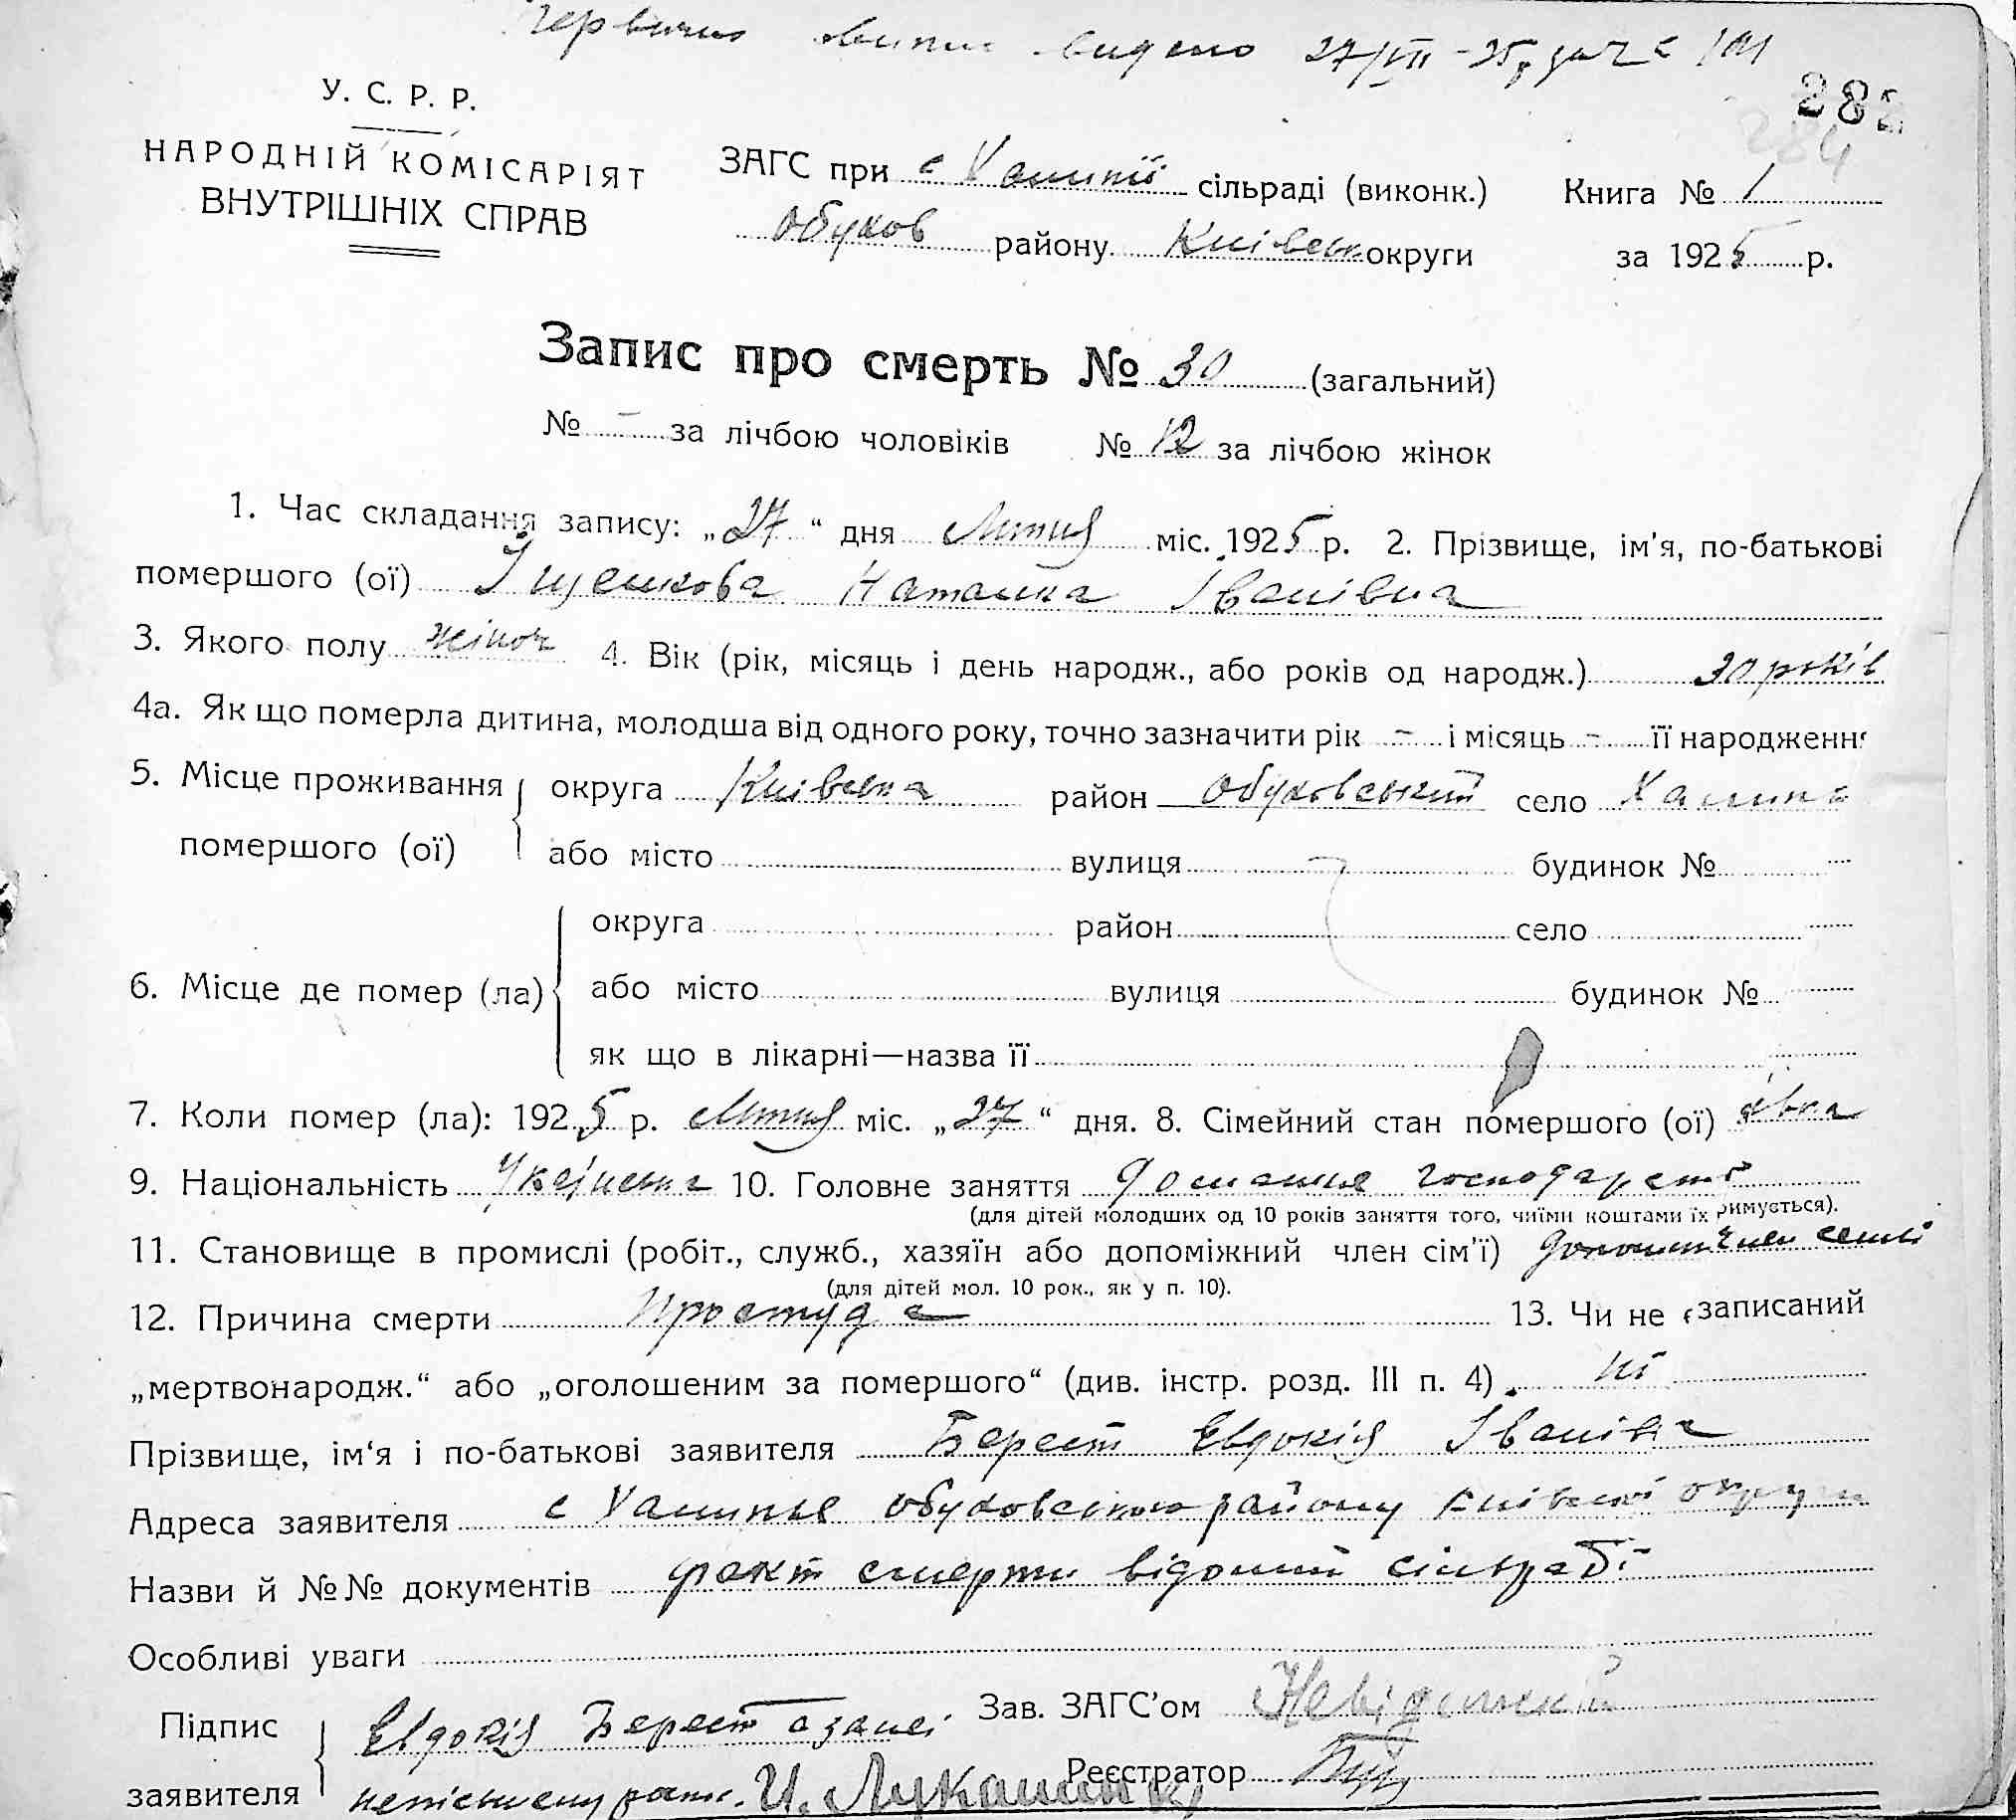 видено 27/VII - 25 р
282
284
У. С. Р. Р.
НАРОДНІЙ КОМІСАРІЯТ
ВНУТРІШНІХ СПРАВ
ЗАГС при с Халипї сільраді (виконк.) Книга № 1
Обухов району Київськ округи за 1925 р.
Запис про смерть № 30 (загальний)
№ - за лічбою чоловіків № 12 за лічбою жінок
1. Час складання запису: „27“ дня Липня міс. 1925 р. 2. Прізвище, ім'я, по-батькові
помершого (ої) Іщенкова Наталка Іванівна
3. Якого полу жіноч 4. Вік (рік, місяць і день народж., або років од народж.) 30 років
4а. Як що померла дитина, молодша від одного року, точно зазначити рік - і місяць - її народженн
5. Місце проживання округа Київська район Обуховський село Халипʼє
помершого (ої) або місто вулиця будинок №
округа район село
6. Місце де помер (ла) або місто вулиця будинок №
як що в лікарні—назва її
7. Коли помер (ла): 1925 р. Липня міс. „27“ дня. 8. Сімейний стан помершого (ої) дівка
9. Національність Українка 10. Головне заняття Домашнє господарств
(для дітей молодших од 10 років заняття того, чиїми коштами їх римується).
11. Становище в промислі (робіт., служб., хазяїн або допоміжний член сім'ї) допоміж член семьі
(для дітей мол. 10 рок., як у п. 10).
12. Причина смерти Простуда 13. Чи не є записаний
„мертвонародж.“ або „оголошеним за помершого“ (див. інстр. розд. III п. 4) ні
Прізвище, ім‘я і по-батькові заявителя Берест Евдокія Іванівна
Адреса заявителя с Халипье Обуховського району Київської округи
Назви й №№ документів факт смерти відомий сільраді
Особливі уваги
Підпис Евдокія Берест а за неї Зав. ЗАГС’ом
заявителя неписьмену розп. И. Лукашенко Реєстратор